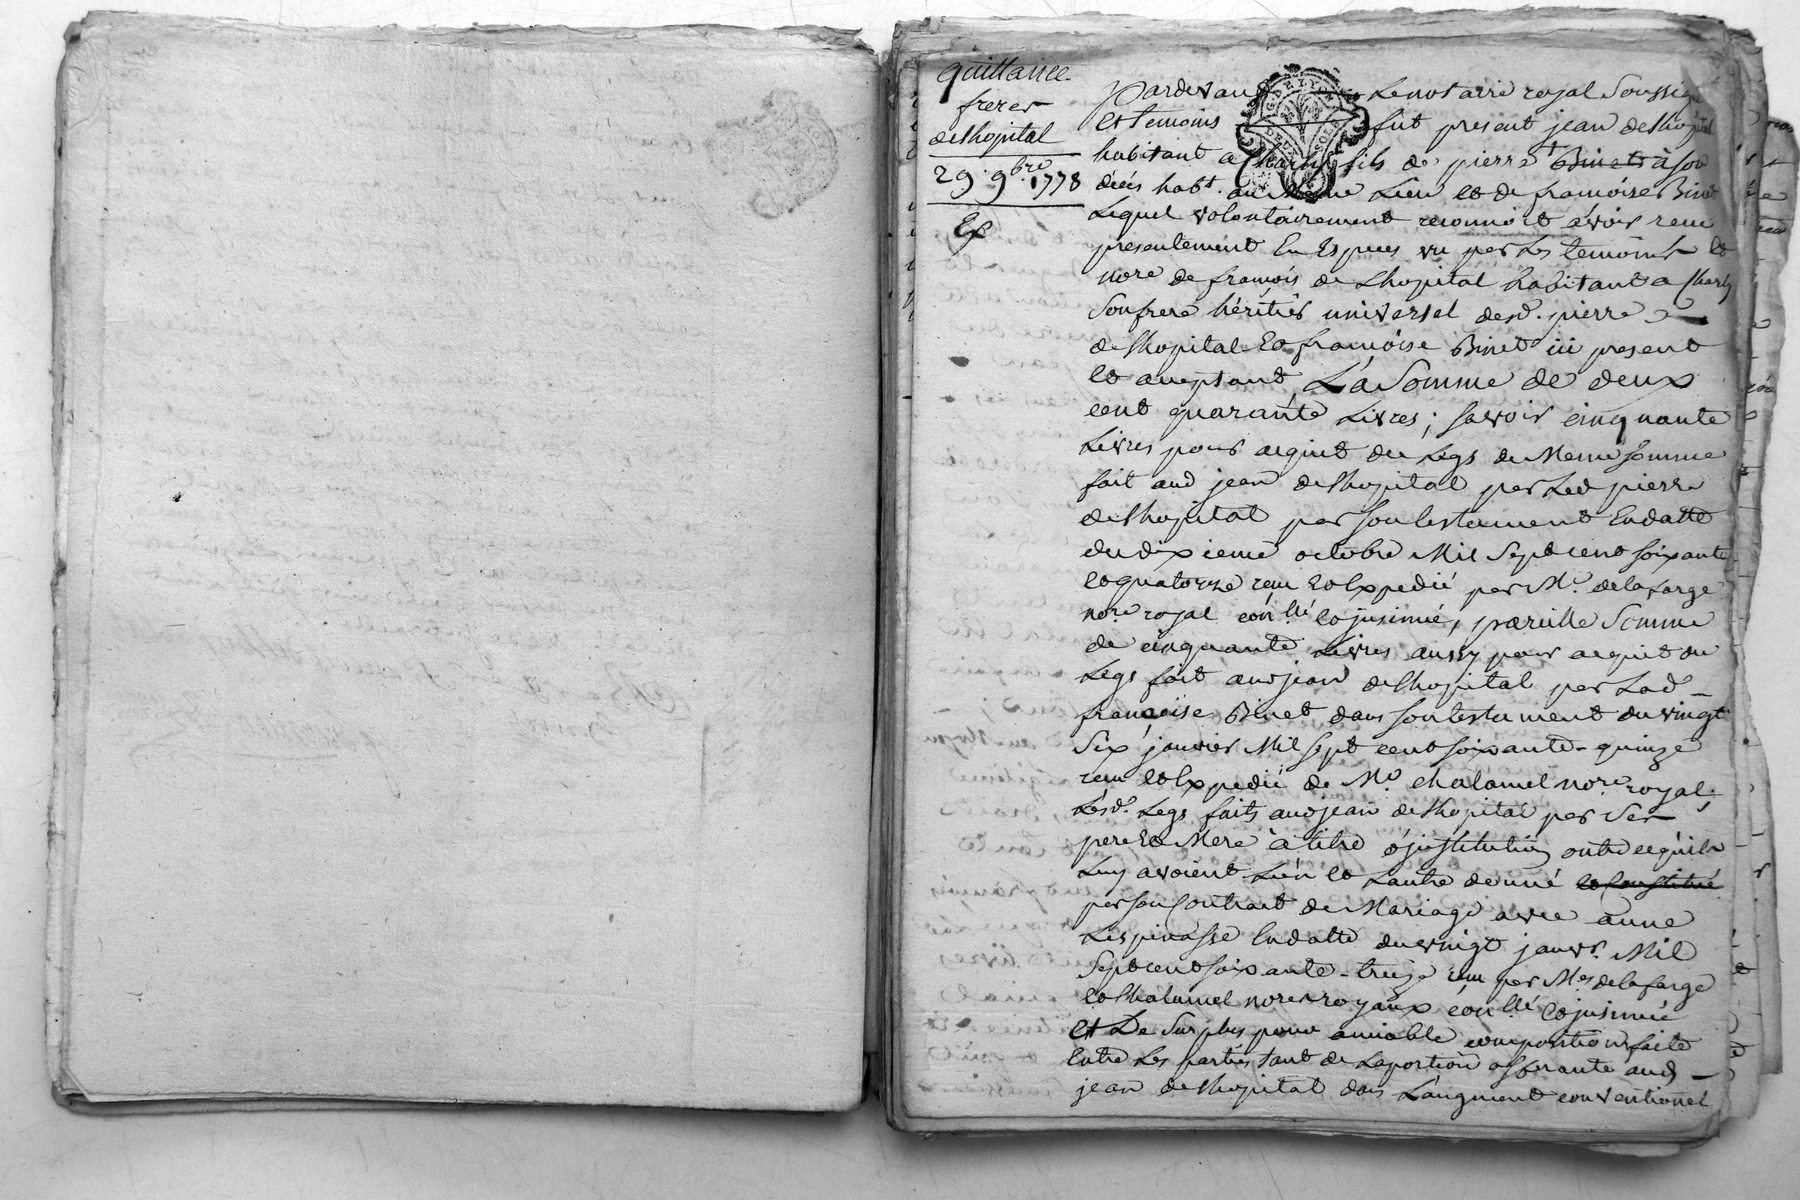 quittance
freres
deshopital
29 9bre 1778
Ex
Pardevant Le notaire royal Soussigné
et temoins fut present jean deshopital
habitant a Charly fils de pierre + Binet à son
décés habt. au Meme Lieu et de francoise Binet
Lequel volontairement reconnoit avoir recu
presentement En Especes vu par Les temoins et
nore de francois de Lhopital habitant a Charly
Son frere héritier universel desd. pierre
deshopital Et francoise Binet ici present
et acceptant, La Somme de deux
cent quarante Livres; savoir cinquante
Livres pour acquit du Legs de Meme somme
fait aud jean deshopital par Led pierre
deshopital par son testament En datte
du dixieme octobre Mil Sept cent soixante
et quatorze recu Et Expedié par Me. delafarge
nore. royal con.llé et insinué, pareille Somme
de cinquante Livres aussy pour acquit du
Legs fait aud jean deshopital par Lad.
francoise Binet dans son testament du vingt
Six janvier Mil sept cent soixante-quinze
recu et Expedié de Me. chalamel nore. royal;
Lesd. Legs faits aud jean deshopital par Ses
pere Et Mere à titre d'institution outre ce qu'ils
Luy avoient L'un et Lautre donné et constitué
par son Contrat de Mariage avec anne
Lespinasse En datte du vingt janvr. Mil
Sept cent soixante-treize recu par Mes delafarge
et Chalamel nores royaux con.llé et insinué
Et De Surplus pour amiable composition faite
Entre Les parties tant de La portion afferante aud
jean deshopital dans L'augment conventionel